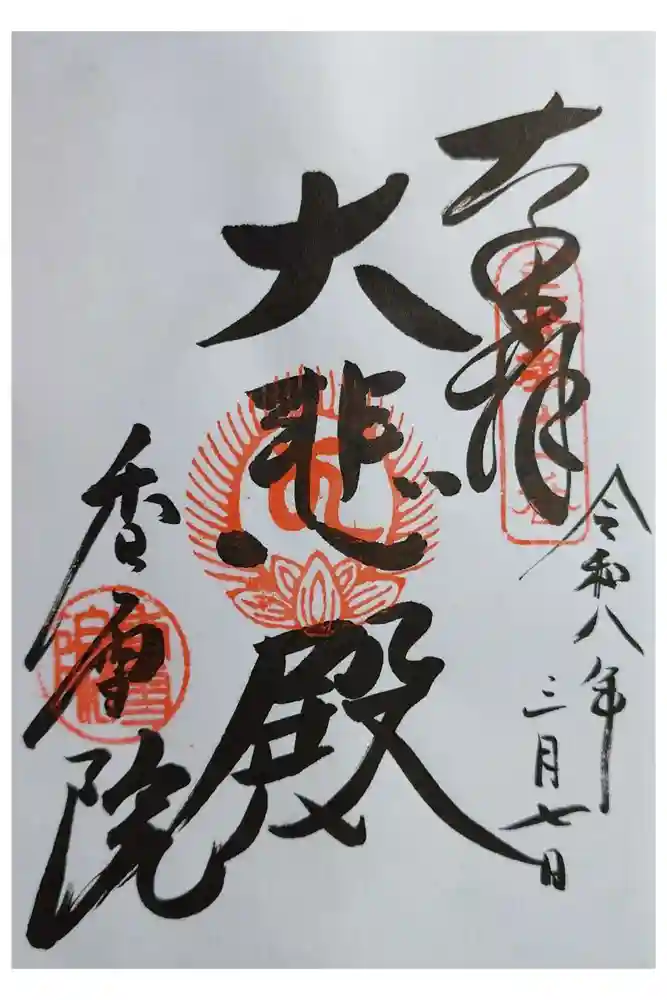 奉拝
令和八年
三月七日
大悲殿
香 院